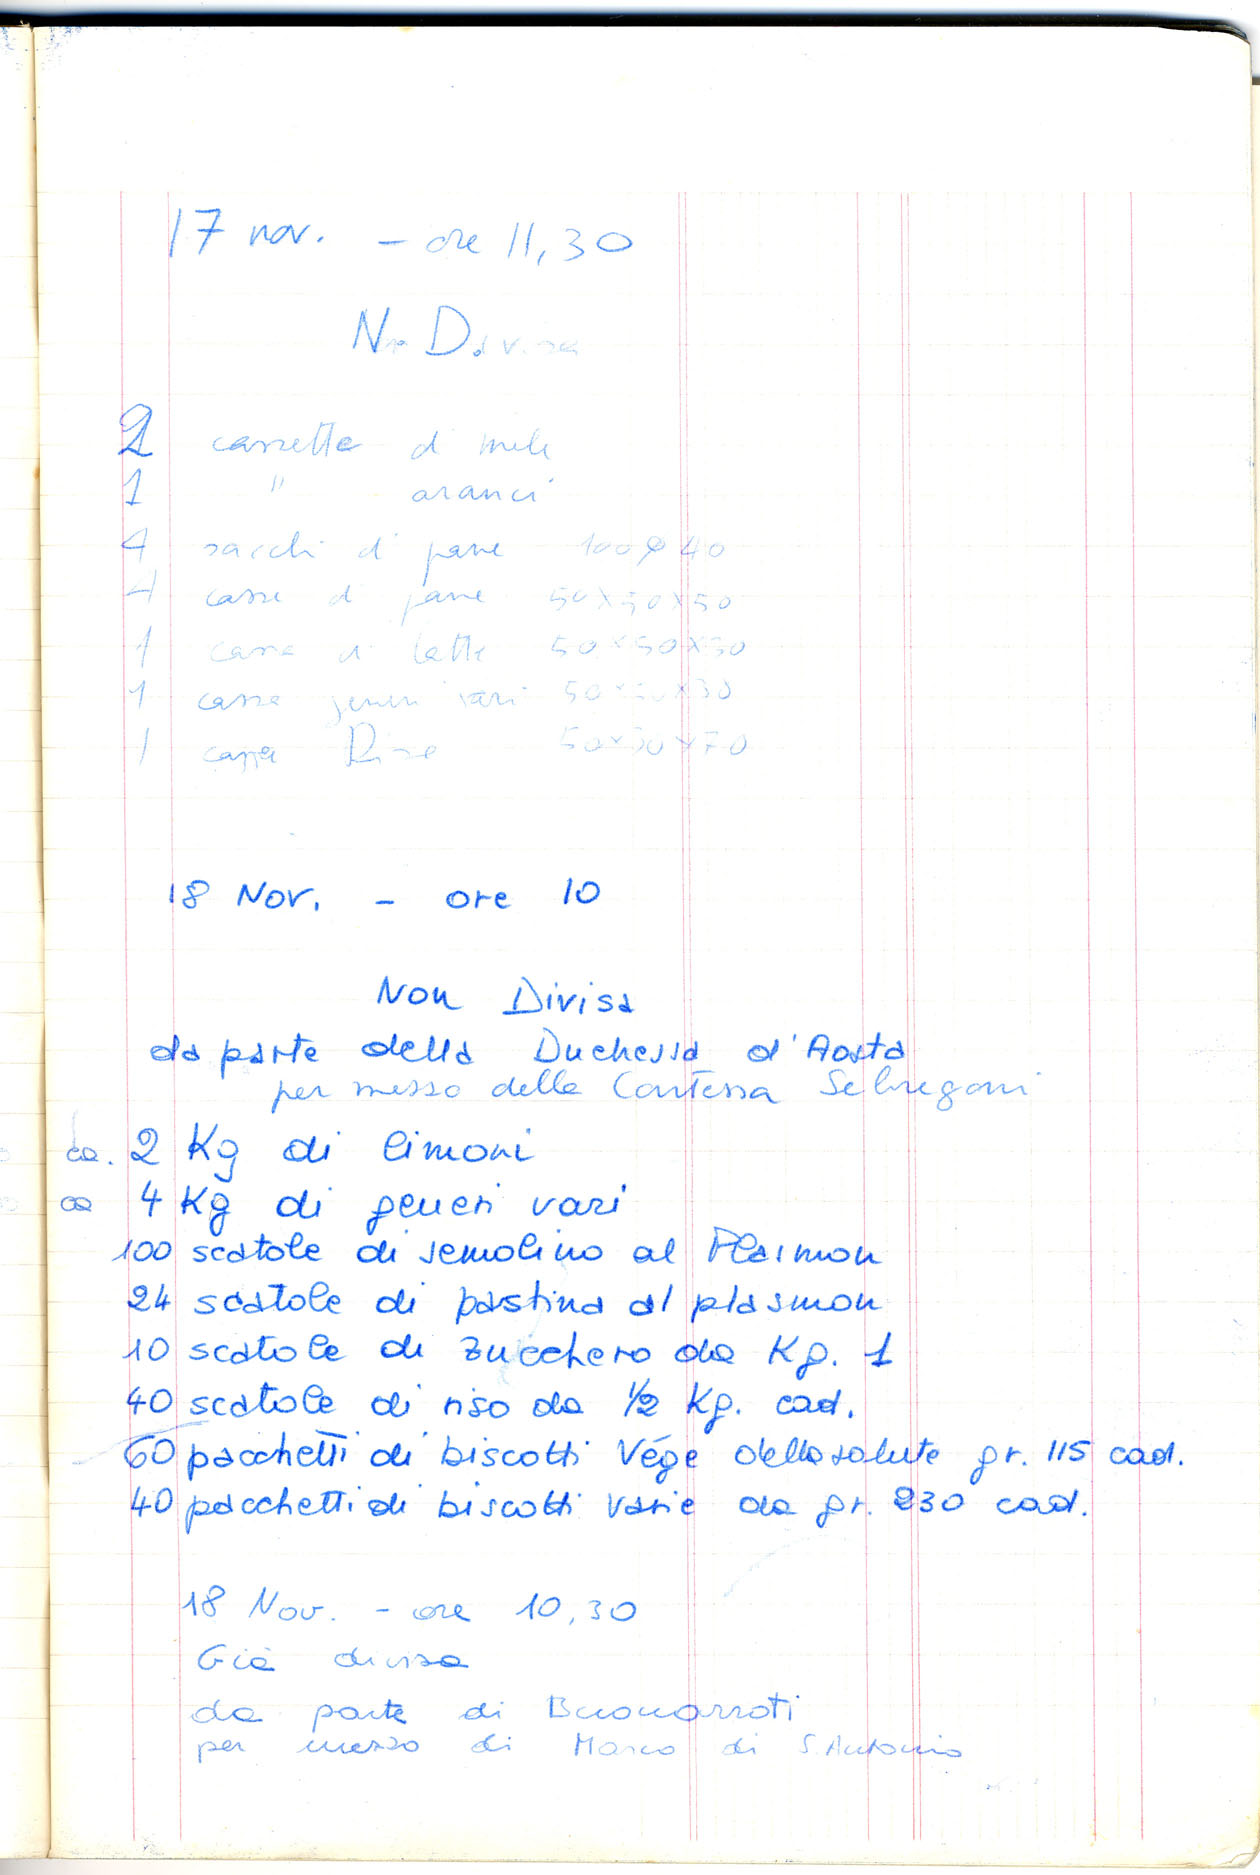 17 nov. - ore 11,30
Non Divisa
2 cassette di mele
1 " aranci
4 sacchi di pane 100 φ 40
4 casse di pane 50x50x50
1 cassa di latte 50x50x30
1 cassa generi vari 50x50x30
1 cassa Riso 50x30x70
18 Nov. - ore 10
Non Divisa
da parte della Duchessa d'Aosta
per mezzo della Contessa
ca. 2 Kg di limoni
ca 4 Kg di generi vari
100 scatole di semolino al Plasmon
24 scatole di pastina al plasmon
10 scatole di zucchero da Kg. 1
40 scatole di riso da 1/2 Kg. cad.
60 pacchetti di biscotti Végé della salute gr. 115 cad.
40 pacchetti di biscotti varie da gr. 230 cad.
18 Nov. - ore 10,30
Già divisa
da parte di Buonarroti
per mezzo di Marco di S. Antonio